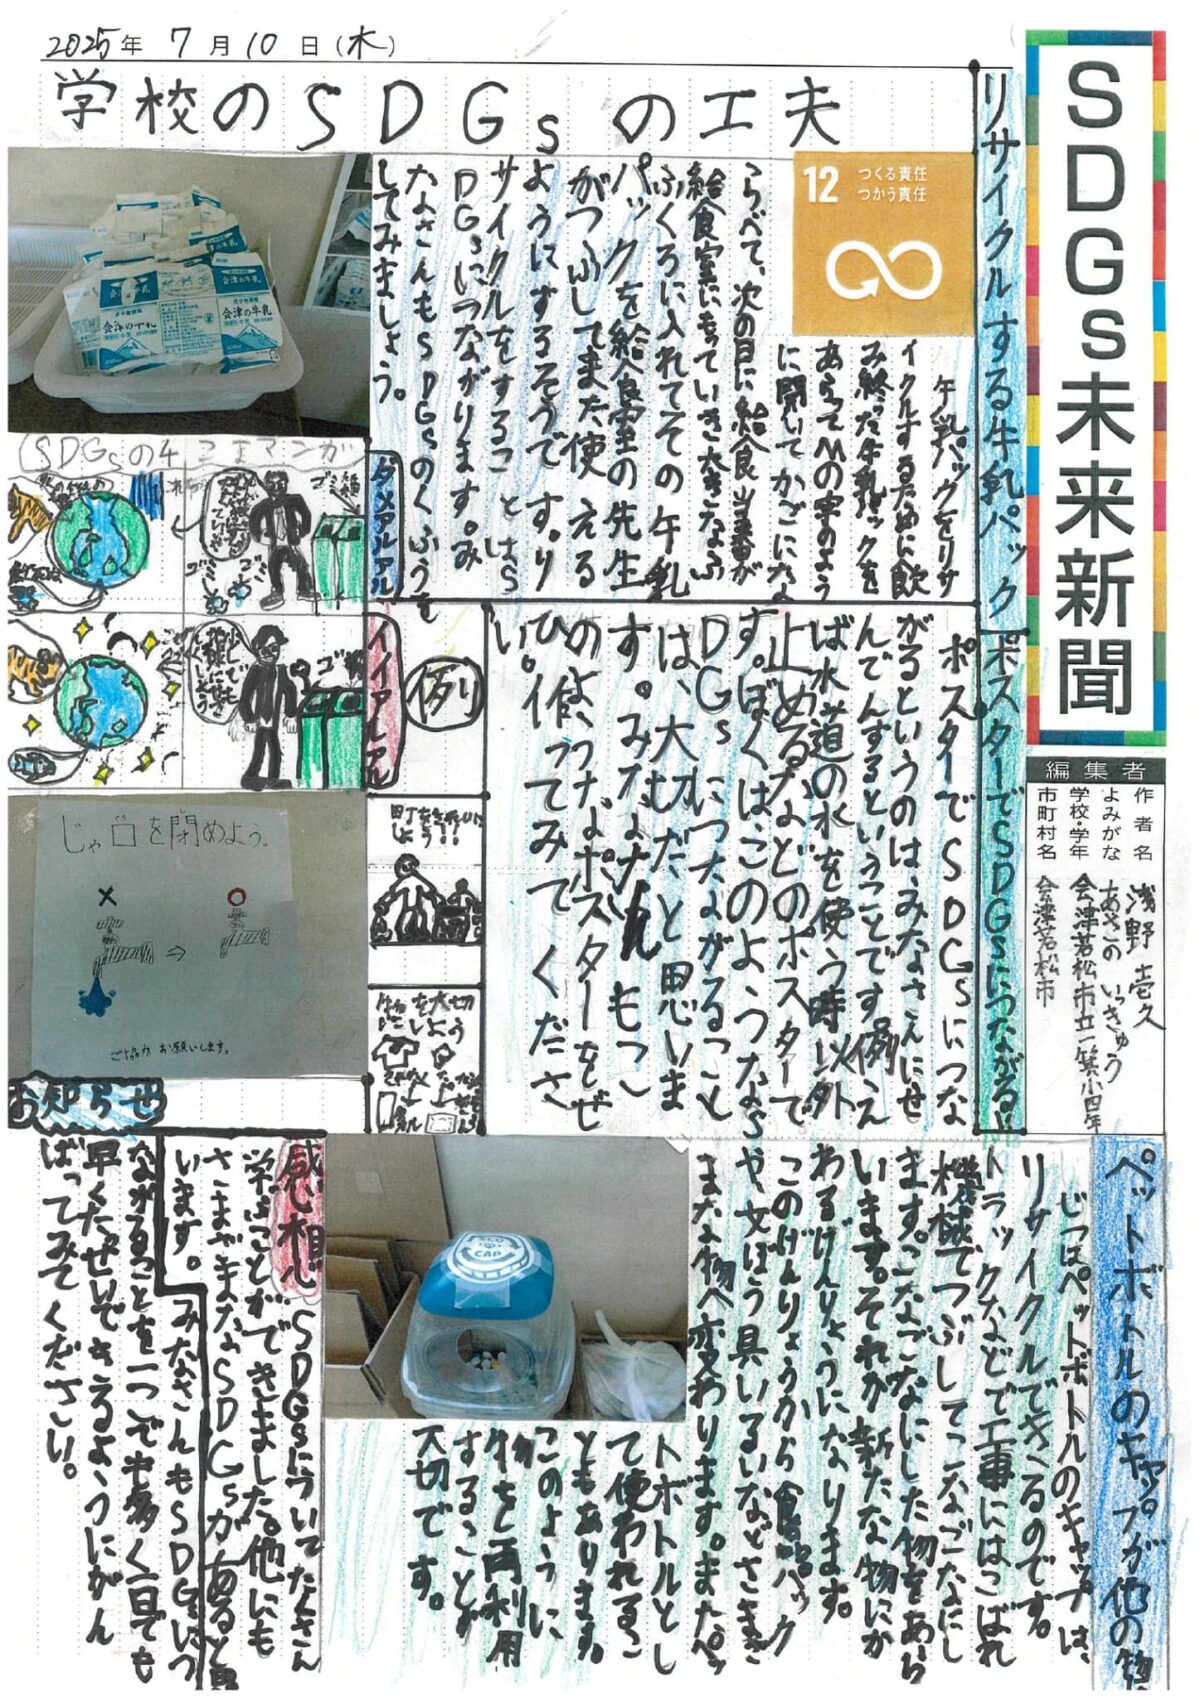 2025年 7月10日(木)
SDGs未来新聞
編集者
作者名 浅野 壱久
よみがな あさの いっきゅう
学校・学年 会津若松市立一箕小四年
市町村名 会津若松市
学校のSDGsの工夫
リサイクルする牛乳パック
12 つくる責任
つかう責任
牛乳パックをリサ
イクルするために飲
み終った牛乳パックを
あらってMの字のよう
に開いてかごにな
らべて、次の日に給食当番が
給食室にもっていき大きなふ
ふくろに入れてその牛乳
パックを給食室の先生
がつぶしてまた使える
ようにするそうです。リ
サイクルをすることはS
DGsにつながります。み
なさんもSDGsのくふうを
してみましょう。
会津の牛乳
会津の牛乳
SDGsの4こまマンガ
ダメアルアル
イイアルアル
例
ポスターでSDGsにつながる!!
ポスターでSDGsにつな
がるというのは、みなさんにせ
んでんするということです例え
ば水道の水を使う時以外
止めるなどのポスターで
す。ぼくはこのようなS
DGsにつながること
は、大切だと思いま
す。みなさんもこ
のようなポスターをぜ
ひ作ってみてくださ
い。
じゃ口を閉めよう。
ご協力お願いします。
町をきれいに
しよう!!
物を大切
に使おう
ペットボトルのキャップが他の物
じつはペットボトルのキャップは、
リサイクルできるのです。
トラックなどで工事にはこばれ
機械でつぶしてこなごなにし
ます。こなごなにした物をあら
います。それが新たな物にか
わるげんりょうになります。
このげんりょうから食品パック
や文ぼう具いるいなどさまざ
まな物へ変わります。またペッ
トボトルとし
て使われるこ
ともあります。
このように
物を再利用
することが
大切です。
ECO
CAP
感想
SDGsについてたくさん
学ぶことができました。他にも
さまざまなSDGsがあると思
います。
お知らせ
みなさんもSDGsにつ
ながることを一つでも多く一日でも
早くたっせいできるようにがん
ばってみてください。